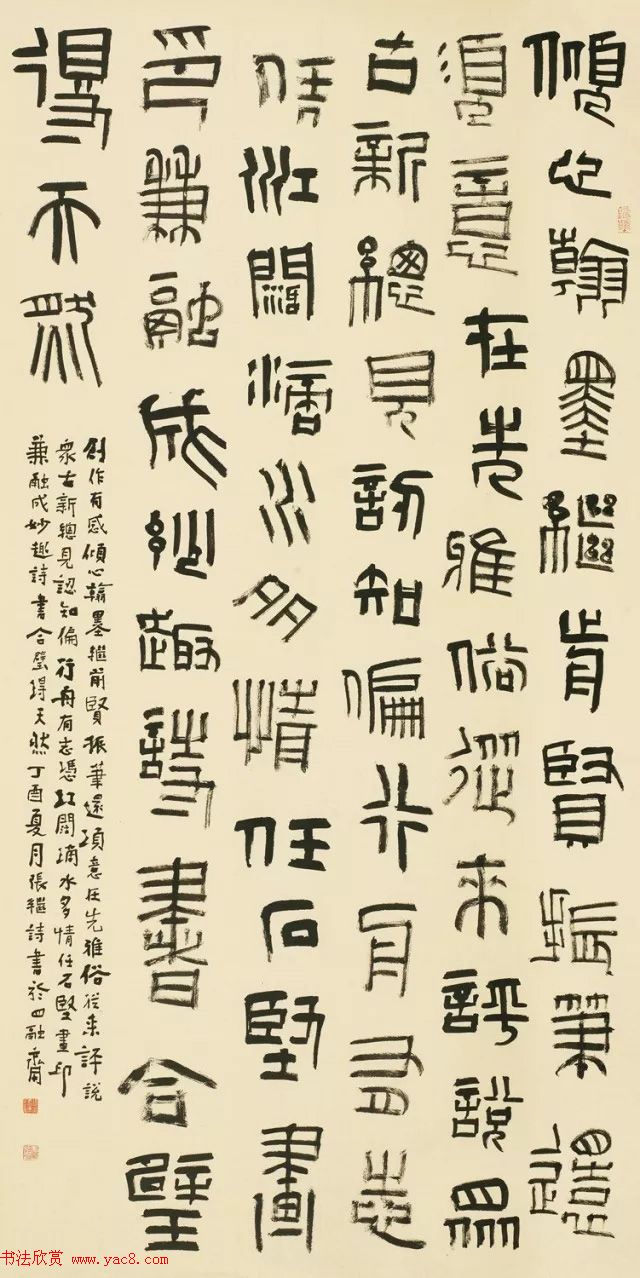 傾心翰墨繼前賢振筆還
須意在先雅俗從來評說眾
古新總見認知偏行舟有志
憑江闊滴水多情任石堅畫
印兼融成妙趣詩書合璧
得天然
創作有感傾心翰墨繼前賢振筆還須意在先雅俗從來評說
眾古新總見認知偏行舟有志憑江闊滴水多情任石堅畫印
兼融成妙趣詩書合璧得天然丁酉夏月張繼詩書於四融齋
书法欣赏 www.yac8.com